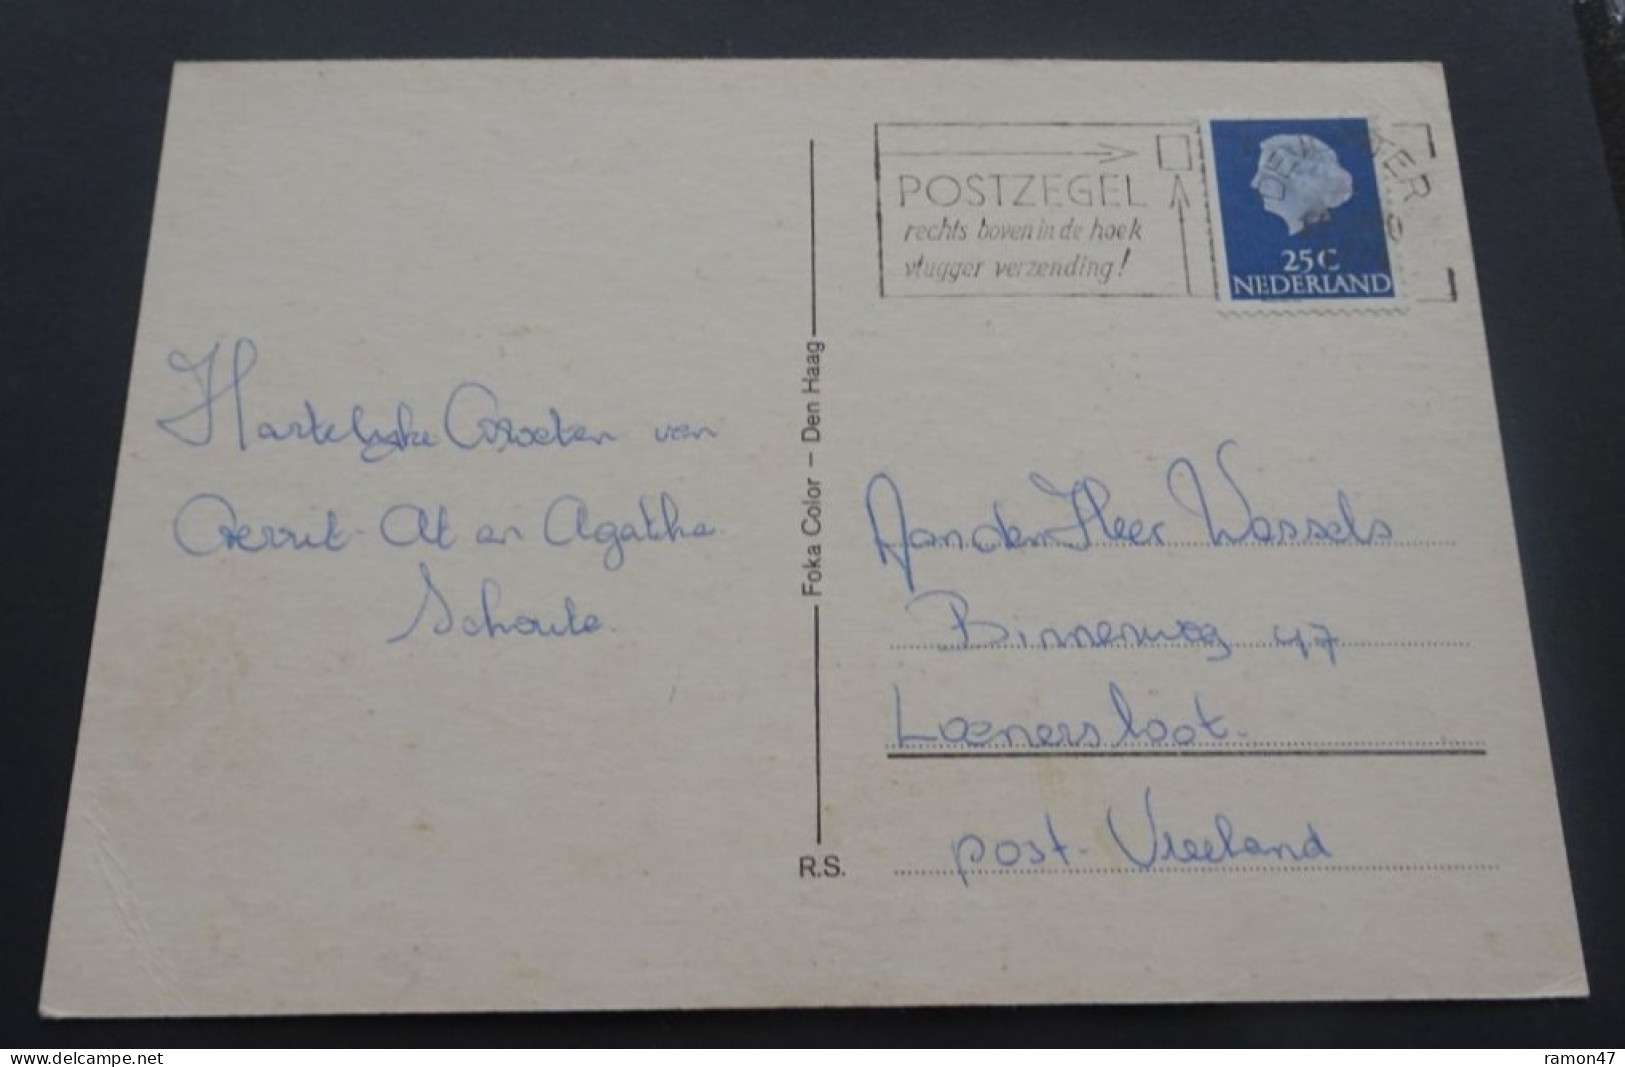 POSTZEGEL
rechts boven in de hoek
vlugger verzending!
25 C
NEDERLAND
DEN HELDER
Hartelijke Groeten van
Gerrit - At en Agatha
Schoute.
Foka Color – Den Haag
R.S.
Aan den Heer Wassels
Binnenweg 47
Loenersloot.
post - Vreeland
www.delcampe.net
ramon47